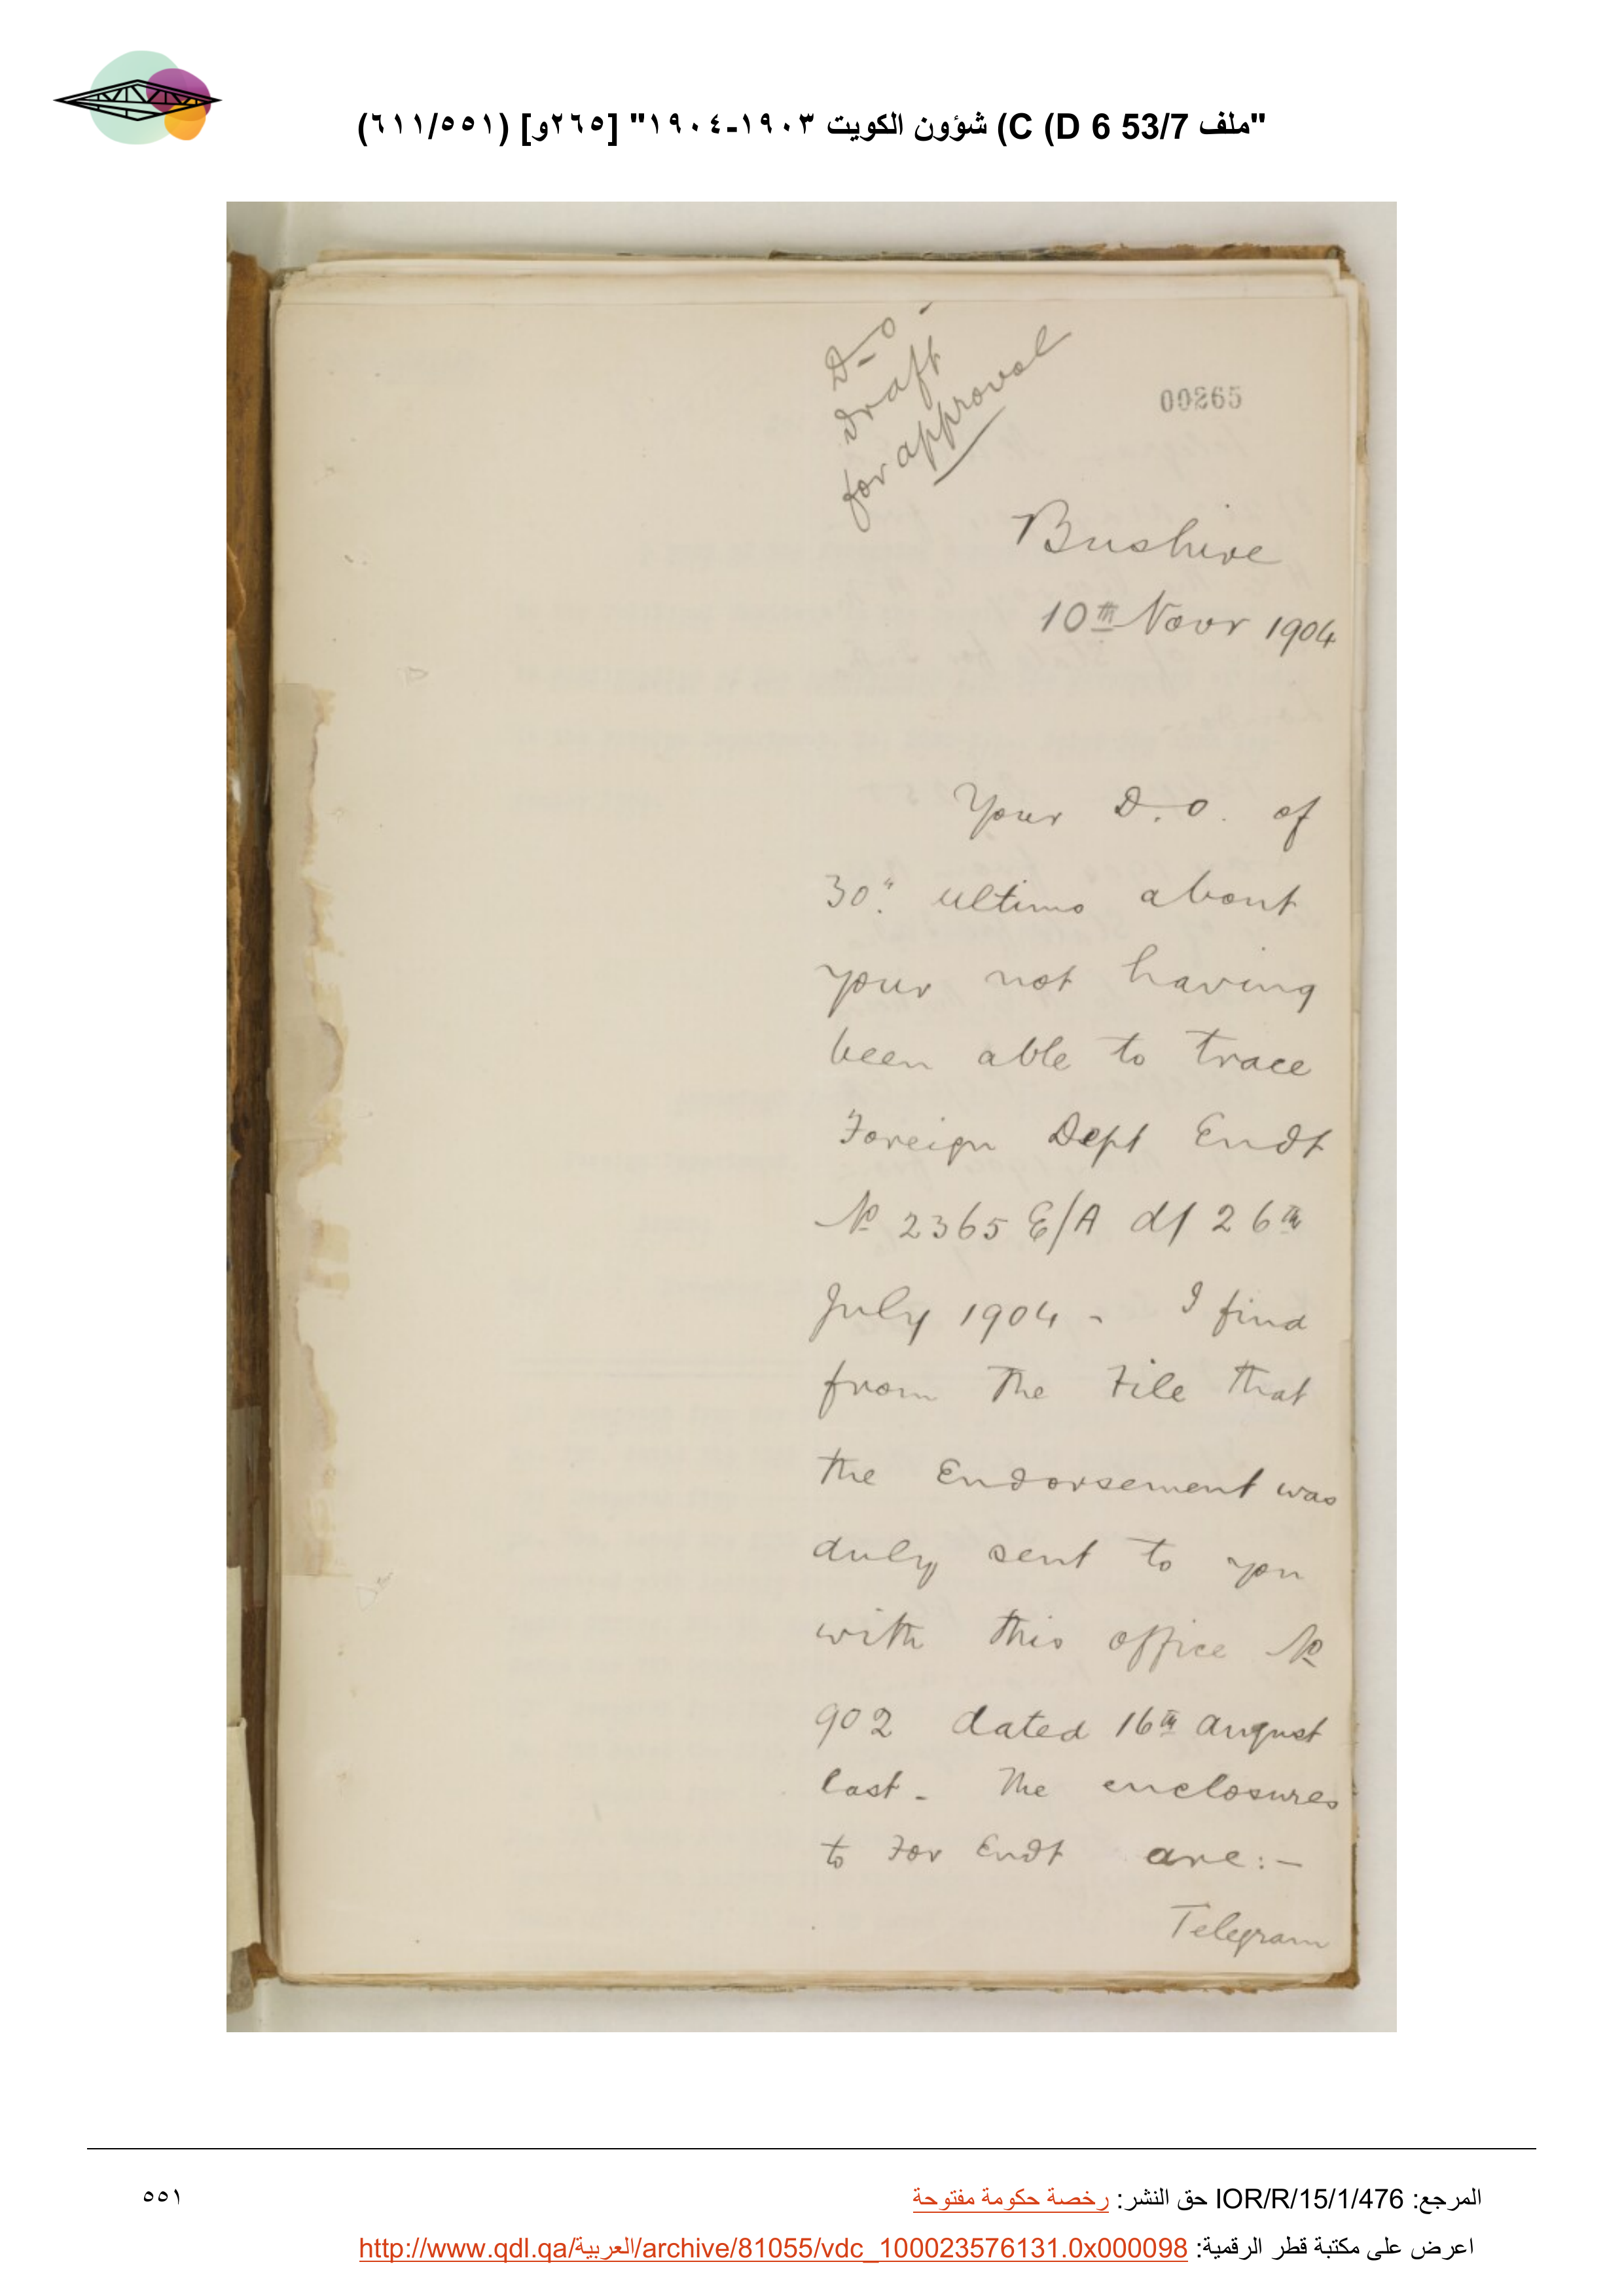 "ملف 53/7 C (D 6) شؤون الكويت ١٩٠٣-١٩٠٤" [٢٦٥و] (٦١١/٥٥١)
D-O-
Draft
for approval
00265
Bushire
10th Novr 1904
Your D.O. of
30th ultimo about
your not having
been able to trace
Foreign Dept Endt
No 2365 E/A dt 26th
July 1904 - I find
from the File that
the Endorsement was
duly sent to you
with this office No
902 dated 16th August
last - The enclosures
to For Endt are:-
Telegram
المرجع: IOR/R/15/1/476 حق النشر: رخصة حكومة مفتوحة
٥٥١
اعرض على مكتبة قطر الرقمية: http://www.qdl.qa/العربية/archive/81055/vdc_100023576131.0x000098